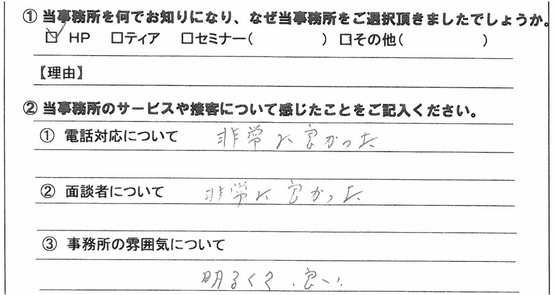 ① 当事務所を何でお知りになり、なぜ当事務所をご選択頂きましたでしょうか。
☑ HP □ティア □セミナー( ) □その他( )
【理由】
② 当事務所のサービスや接客について感じたことをご記入ください。
① 電話対応について 非常に良かった
② 面談者について 非常に良かった
③ 事務所の雰囲気について
明るくて、良い